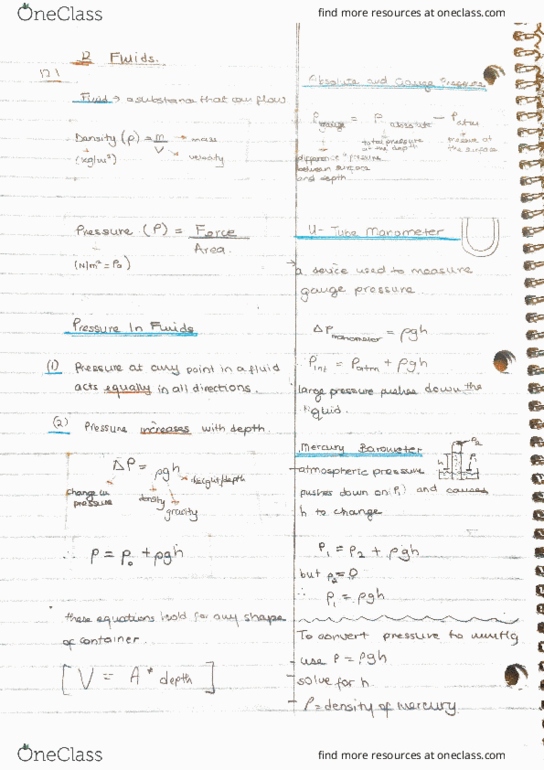 OneClass
find more resources at oneclass.com
12 Fluids.
12.1
Fluid → a substance that can flow
Density (ρ) = m → mass
(kg/m³) V → velocity
Pressure (P) = Force
Area
(N/m² = Pa)
Pressure In Fluids
(1) Pressure at any point in a fluid
acts equally in all directions.
(2) Pressure increases with depth.
ΔP = ρgh → height/depth
change in pressure
density
gravity
∴ P = P₀ + ρgh
these equations hold for any shape
of container.
[V = A * depth]
Absolute and Gauge Pressure
Pgauge = Pabsolute - Patm
difference in pressure between surface and depth.
total pressure at the depth
pressure at the surface
U-Tube Manometer
→ a device used to measure
gauge pressure.
ΔPmanometer = ρgh
Pint = Patm + ρgh
large pressure pushes down the
liquid.
Mercury Barometer
P₂
h
P₁
- atmospheric pressure
pushes down on P₁) and causes
h to change
P₁ = P₂ + ρgh
but P₂ = 0
∴ P₁ = ρgh
To convert pressure to mmHg
- use P = ρgh
- solve for h
- ρ = density of mercury
OneClass
find more resources at oneclass.com